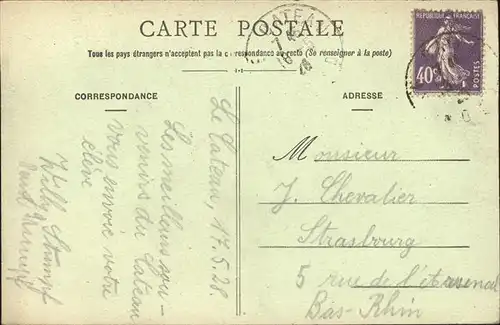 CARTE POSTALE
Tous les pays étrangers n'acceptent pas la correspondance au recto (Se renseigner à la poste)
CORRESPONDANCE
ADRESSE
RÉPUBLIQUE FRANÇAISE
40c
POSTES
Le Cateau, 17.5.28
Les meilleurs sou-
venirs du Cateau
vous envoie votre
élève
Willy Stumpf
Monsieur
J. Chevalier
Strasbourg
5 rue de l'Arsenal
Bas-Rhin